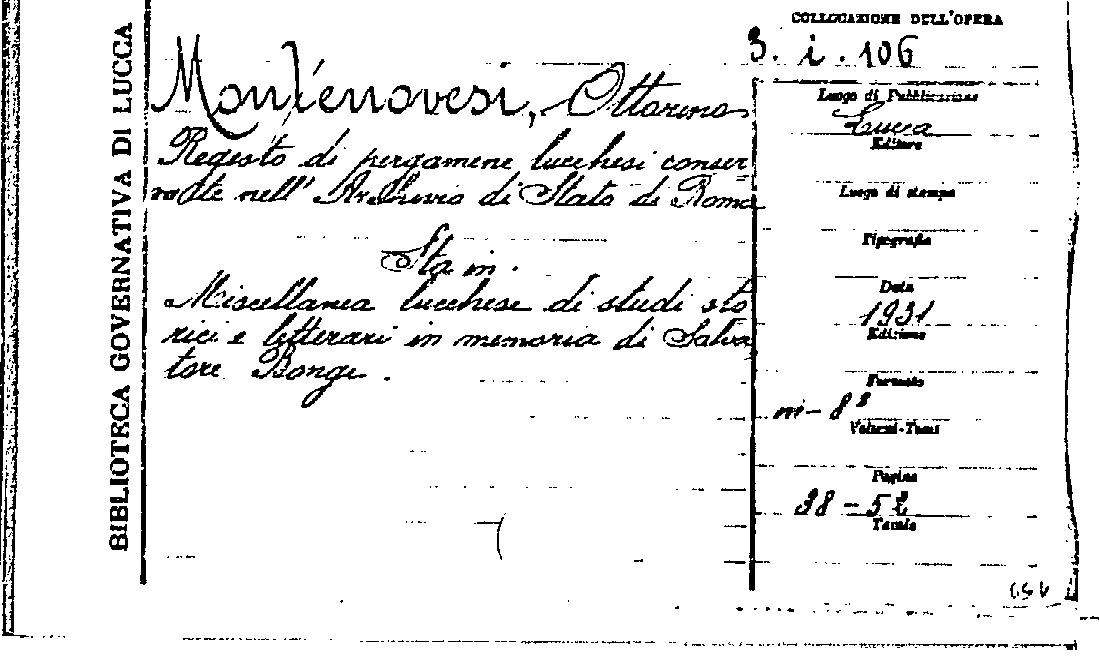 BIBLIOTECA GOVERNATIVA DI LUCCA
COLLOCAZIONE DELL'OPERA
3. i. 106
Montenovesi, Ottorino
Regesto di pergamene lucchesi conser-
vate nell'Archivio di Stato di Roma
Sta in.
Miscellanea lucchese di studi sto
rici e letterari in memoria di Salva
tore Bongi.
Luogo di Pubblicazione
Lucca
Editore
Luogo di stampa
Tipografia
Data
1931
Edizione
Formato
in-8°
Volumi-Tomi
Pagine
38-52
Tavole